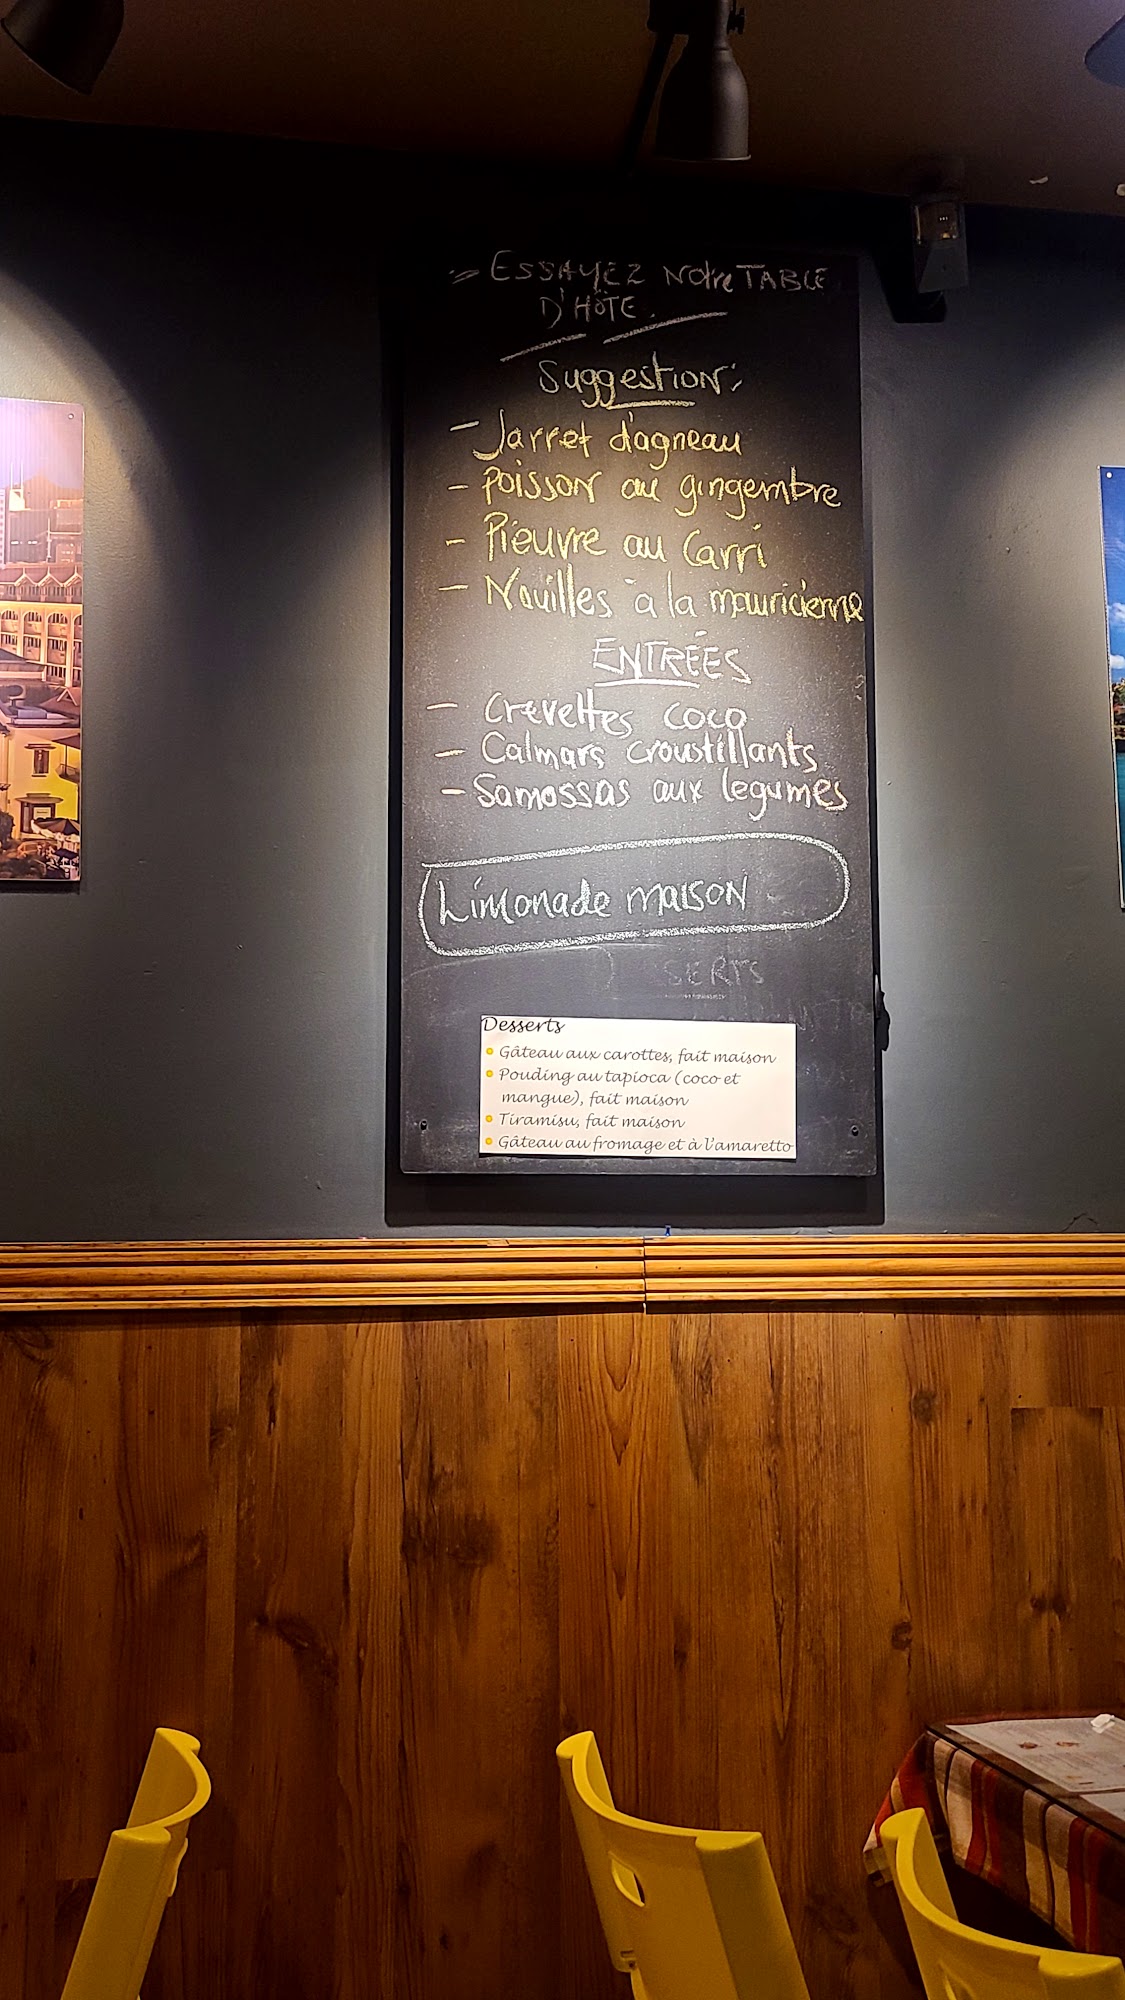 ESSAYEZ NOtre TABLE
D'HÔTE.
Suggestion:
- Jarret d'agneau
- Poisson au gingembre
- Pieuvre au Carri
- Nouilles à la mauricienne
ENTRÉES
- Crevettes coco
- Calmars croustillants
- Samossas aux legumes
Limonade maison
SERTS
Desserts
Gâteau aux carottes, fait maison
Pouding au tapioca (coco et
mangue), fait maison
Tiramisu, fait maison
Gâteau au fromage et à l'amaretto